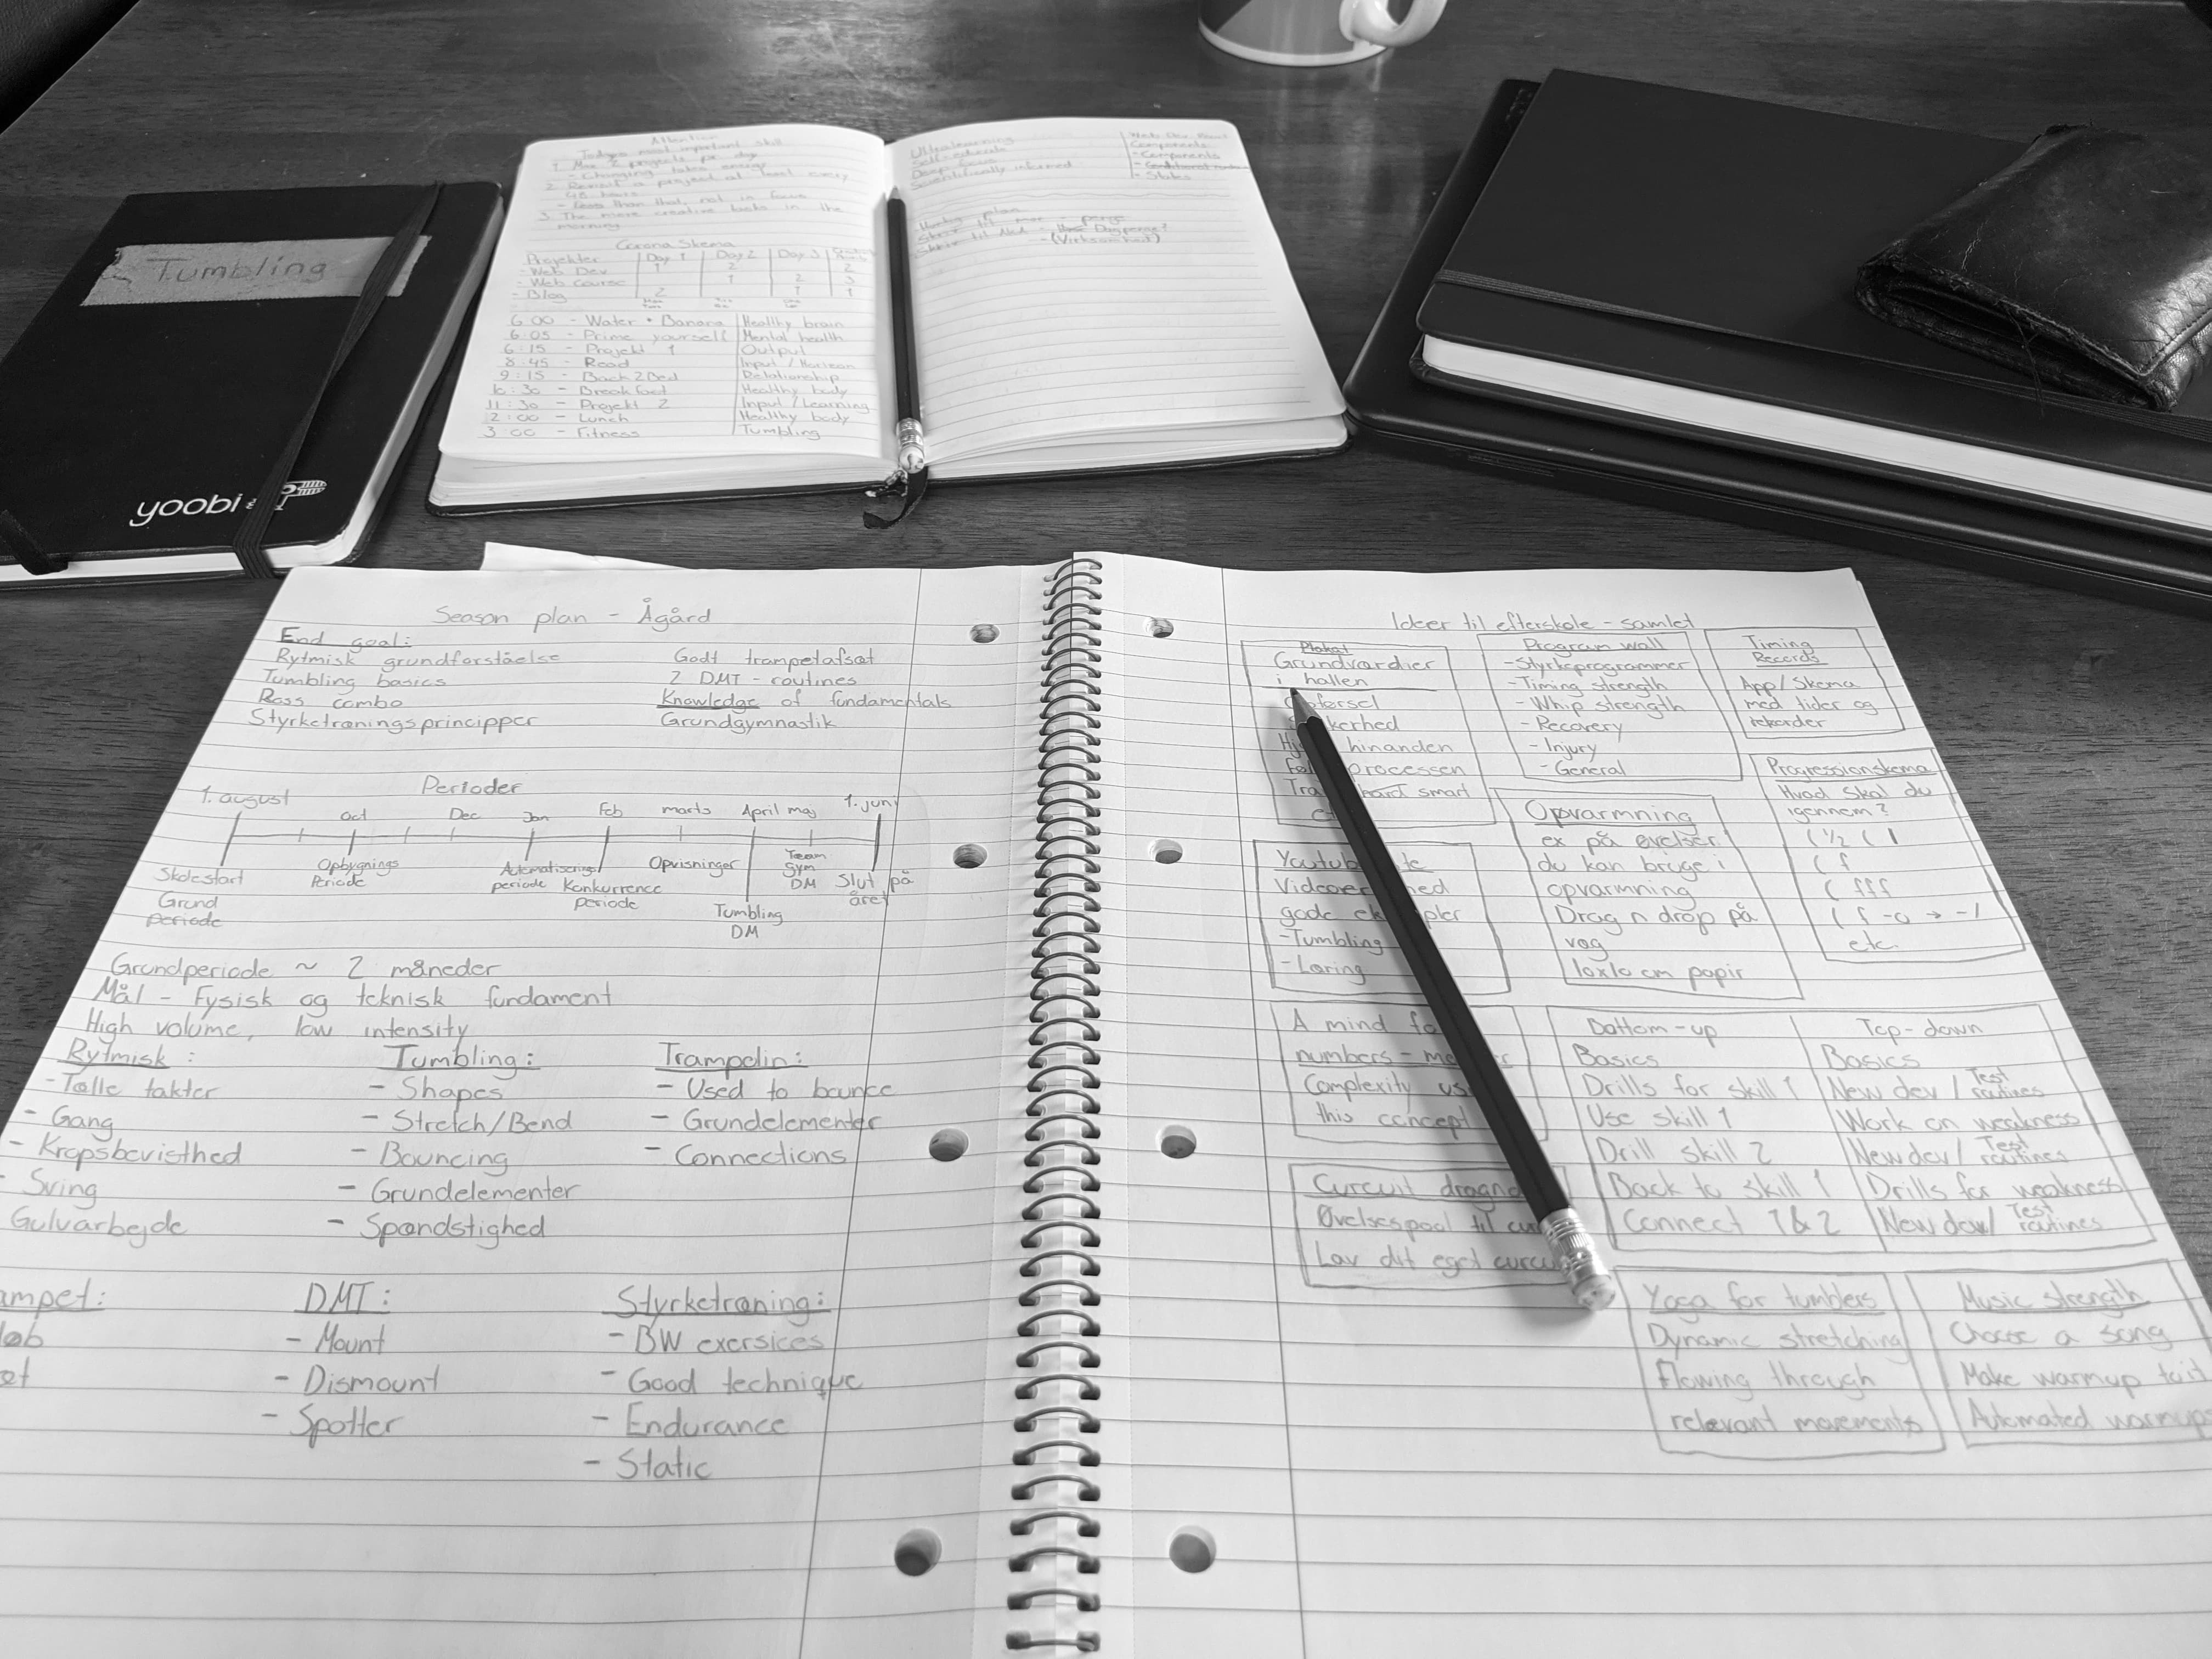 Tumbling
yoobi
Attention
Todays most important skill
1. Max 2 projects pr. day
- Changing takes energy
2. Revisit a project at least every
48 hours
- Less than that, not in focus
3. The more creative tasks in the
morning
Corona Skema
Projekter | Day 1 | Day 2 | Day 3
- Web Dev 1 2 2
- Web course 1 2 3
- Blog 2 1 1
6:00 - Water + Banana | Healthy brain
6:05 - Prime yourself | Mental health
6:15 - Projekt 1 | Output
8:45 - Read | Input / Horizon
9:15 - Back2Bed | Relationship
10:30 - Breakfast | Healthy body
11:30 - Projekt 2 | Input / Learning
2:00 - Lunch | Healthy body
3:00 - Fitness | Tumbling
Ultralearning
Self-educate
Deep focus
Scientifically informed
Components
- Components
- States
(Virksomhed)
Season plan - Ågård
End goal:
Rytmisk grundforståelse Godt trampetafsæt
Tumbling basics 2 DMT - routines
Bass combo Knowledge of fundamentals
Styrketræningsprincipper Grundgymnastik
Perioder
1. august Oct Dec Jan Feb marts April maj 1. juni
Skolestart
Grund
periode
Opbygnings
Periode
Automatiserings
periode
Konkurrence
periode
Opvisninger
Tumbling
DM
Team
Gym
DM
Slut på
året
Grundperiode ~ 2 måneder
Mål - Fysisk og teknisk fundament
High volume, low intensity
Rytmisk: Tumbling: Trampolin:
- Tælle takter - Shapes - Used to bounce
- Gang - Stretch/Bend - Grundelementer
- Kropsbevisthed - Bouncing - Connections
- Sving - Grundelementer
Gulvarbejde - Spændstighed
ampet: DMT: Styrketræning:
løb - Mount - BW exersices
æt - Dismount - Good technique
- Spotter - Endurance
- Static
Ideer til efterskole - samlet
Plakat
Grundværdier
i hallen
hinanden
processen
hard smart
Program wall
- Styrkeprogrammer
- Timing strength
- Whip strength
- Recovery
- Injury
- General
Timing
Records
App/Skema
med tider og
rekorder
Progressionskema
Hvad skal du
igennem?
( 1/2 ( 1
( f
( fff
( f -o → -/
etc.
Opvarmning
ex på øvelser
du kan bruge i
opvarmning
Drag n drop på
væg
10x10 cm papir
- Tumbling
- Læring
A mind fo
numbers - m
Complexity us
this concept
Bottom-up
Basics
Drills for skill 1
Use skill 1
Drill skill 2
Back to skill 1
Connect 1 & 2
Top-down
Basics
New dev / Test routines
Work on weakness
New dev / Test routines
Drills for weakness
New dev / Test routines
Curcuit dragnd
Øvelsespool til cur
Lav dit eget curcu
Yoga for tumblers
Dynamic stretching
Flowing through
relevant movements
Music strength
Choose a song
Make warmup to it
Automated warmups